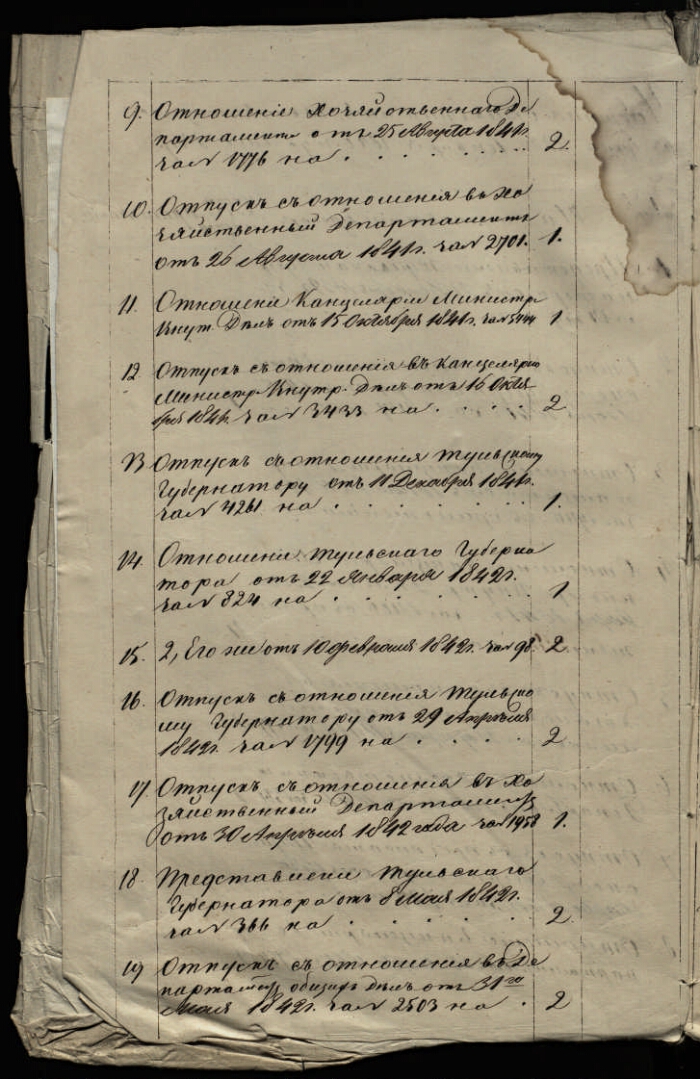 9. Отношеніе Хозяйственнаго Де
партамента отъ 25 Августа 1841г.
за № 1776 на . . . . . . 2.
10. Отпускъ съ отношенія въ Хо
зяйственный Департаментъ
отъ 26 Августа 1841г. за № 2701. 1.
11. Отношеніе Канцеляріи Министр
Внут. Дѣлъ отъ 15 Октября 1841г. за № 1
12 Отпускъ съ отношенія въ Канцелярію
Министр. Внутр. Дѣлъ отъ 16 Октя
бря 1841г. за № 3433 на . . . . 2
13 Отпускъ съ отношенія Тульскому
Губернатору отъ 11 Декабря 1841г.
за № 4261 на . . . . . . 1.
14. Отношеніе Тульскаго Губерна
тора отъ 22 Января 1842г.
за № 824 на . . . . . . 1
15. 2, Его же отъ 10 февраля 1842г. за № 98. 2
16. Отпускъ съ отношенія Тульско
му Губернатору отъ 29 Апрѣля
1842г. за № 1799 на . . . . 2
17. Отпускъ съ отношенія въ Хо
зяйственный Департаментъ
отъ 30 Апрѣля 1842 года за № 1958 1.
18. Представленіе Тульскаго
Губернатора отъ 8 Мая 1842г.
за № 366 на . . . . . . 2
19 Отпускъ съ отношенія въ Де
партам. Дѣлъ отъ 31го
Мая 1842г. за № 2503 на . 2